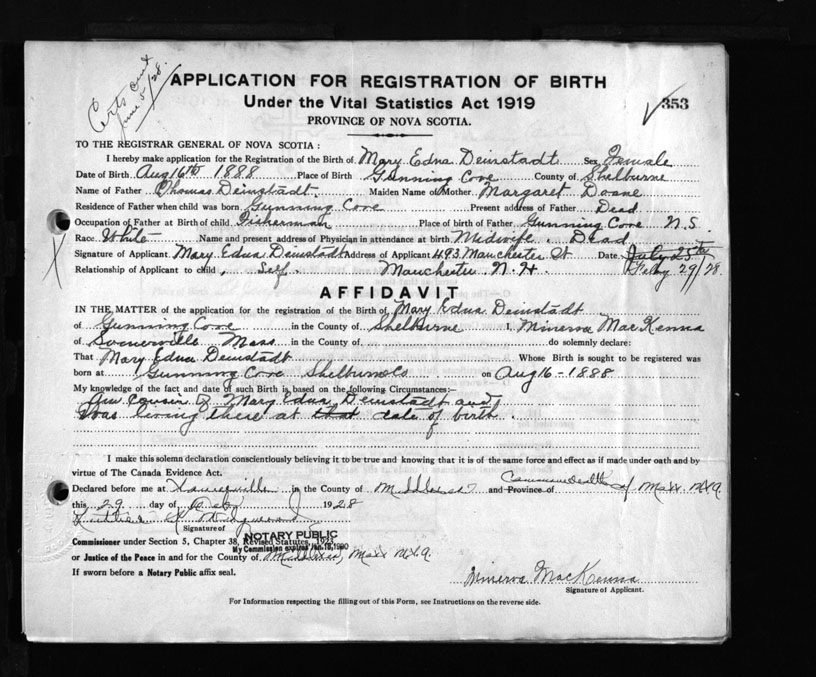 Certs sent
June 5/28.
APPLICATION FOR REGISTRATION OF BIRTH
Under the Vital Statistics Act 1919
353
PROVINCE OF NOVA SCOTIA.
TO THE REGISTRAR GENERAL OF NOVA SCOTIA :
I hereby make application for the Registration of the Birth of Mary Edna Deinstadt Sex Female
Date of Birth Aug 16th 1888 Place of Birth Gunning Cove County of Shelburne
Name of Father Thomas Deinstadt. Maiden Name of Mother Margaret Doane
Residence of Father when child was born Gunning Cove Present address of Father Dead
Occupation of Father at Birth of child Fisherman Place of birth of Father Gunning Cove N.S.
Race White Name and present address of Physician in attendance at birth Midwife. Dead
Signature of Applicant Mary Edna Deinstadt Address of Applicant 493 Manchester St Date July 25th
Relationship of Applicant to child, Self. Manchester N.H. Feby 29/28.
AFFIDAVIT
IN THE MATTER of the application for the registration of the Birth of Mary Edna Deinstadt
of Gunning Cove in the County of Shelburne I, Minerva MacKenna
of Somerville Mass in the County of do solemnly declare:
That Mary Edna Deinstadt Whose Birth is sought to be registered was
born at Gunning Cove Shelburne Co on Aug 16-1888
My knowledge of the fact and date of such Birth is based on the following Circumstances:—
Am cousin of Mary Edna Deinstadt and
was living there at that date of birth.
I make this solemn declaration conscientiously believing it to be true and knowing that it is of the same force and effect as if made under oath and by
virtue of The Canada Evidence Act.
Declared before me at Somerville in the County of Middlesex and Province of Commonwealth of Mass.
this 29 day of Feby 1928
Signature of
NOTARY PUBLIC
Commissioner under Section 5, Chapter 38, Revised Statutes, 1923
My Commission expires Jan.
or Justice of the Peace in and for the County of Middlesex, Mass
If sworn before a Notary Public affix seal.
Minerva MacKenna
Signature of Applicant.
For Information respecting the filling out of this Form, see Instructions on the reverse side.